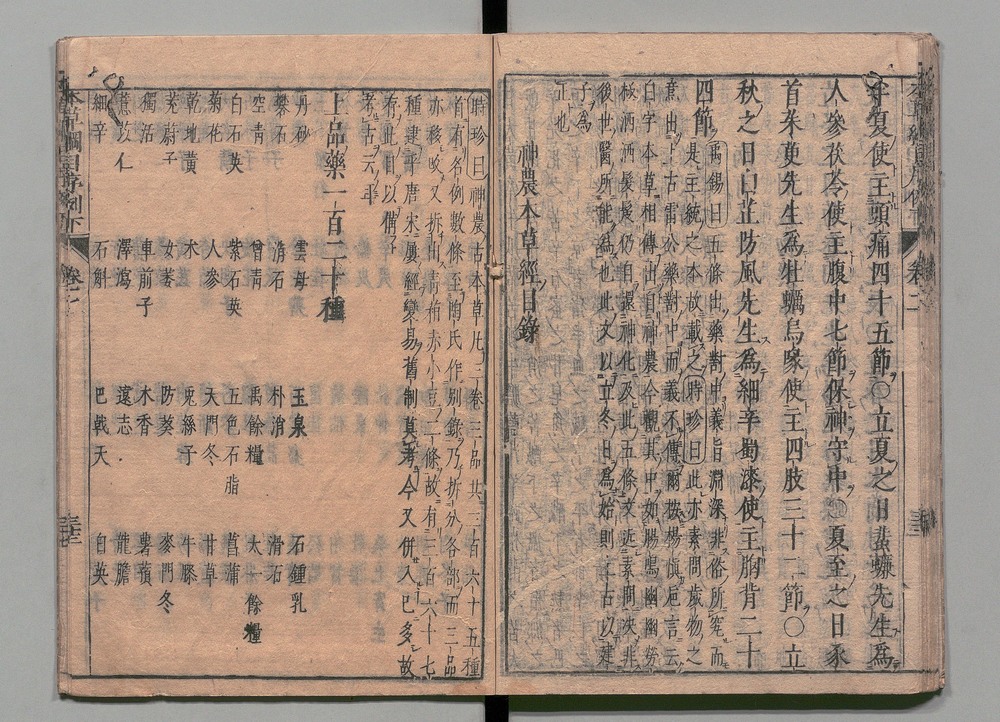 半夏使主頭痛四十五節○立夏之日蜚蠊先生為
人參茯苓使主腹中七節保神守中○夏至之日豕
首茱萸先生為牡蠣烏喙使主四肢三十二節○立
秋之日白芷防風先生為細辛蜀漆使主胸背二十
四節
禹錫曰五條出藥對中義旨淵深非俗所究而
是主統之本故載之時珍曰此亦素問歲物之
意出上古雷公藥對中而義不傳爾按楊慎卮言云
白字本草相傳出自神農今觀其中如腸鳴幽幽勞
極洒洒髮髲仍自還神化及此五條文近素問決非
後世醫所能為也此文以立冬日為始則上古以建
子為
正也
神農本草經目錄
時珍曰神農古本草凡三卷三品共三百六十五種
首有名例數條至陶氏作別錄乃拆分各部而三品
亦移改又拆出青葙赤小豆二條故有三百六十七
種逮乎唐宋屢經變易舊制莫考今又併入已多故
存此目以備
考古云耳
上品藥一百二十種
丹砂 雲母 玉泉 石鍾乳
礬石 消石 朴消 滑石
空青 曾青 禹餘糧 太一餘糧
白石英 紫石英 五色石脂 菖蒲
菊花 人參 天門冬 甘草
乾地黃 朮 兎絲子 牛膝
茺蔚子 女萎 防葵 麥門冬
獨活 車前子 木香 薯蕷
薏苡仁 澤瀉 遠志 龍膽
細辛 石斛 巴戟天 白英
本草綱目序例下 卷之二